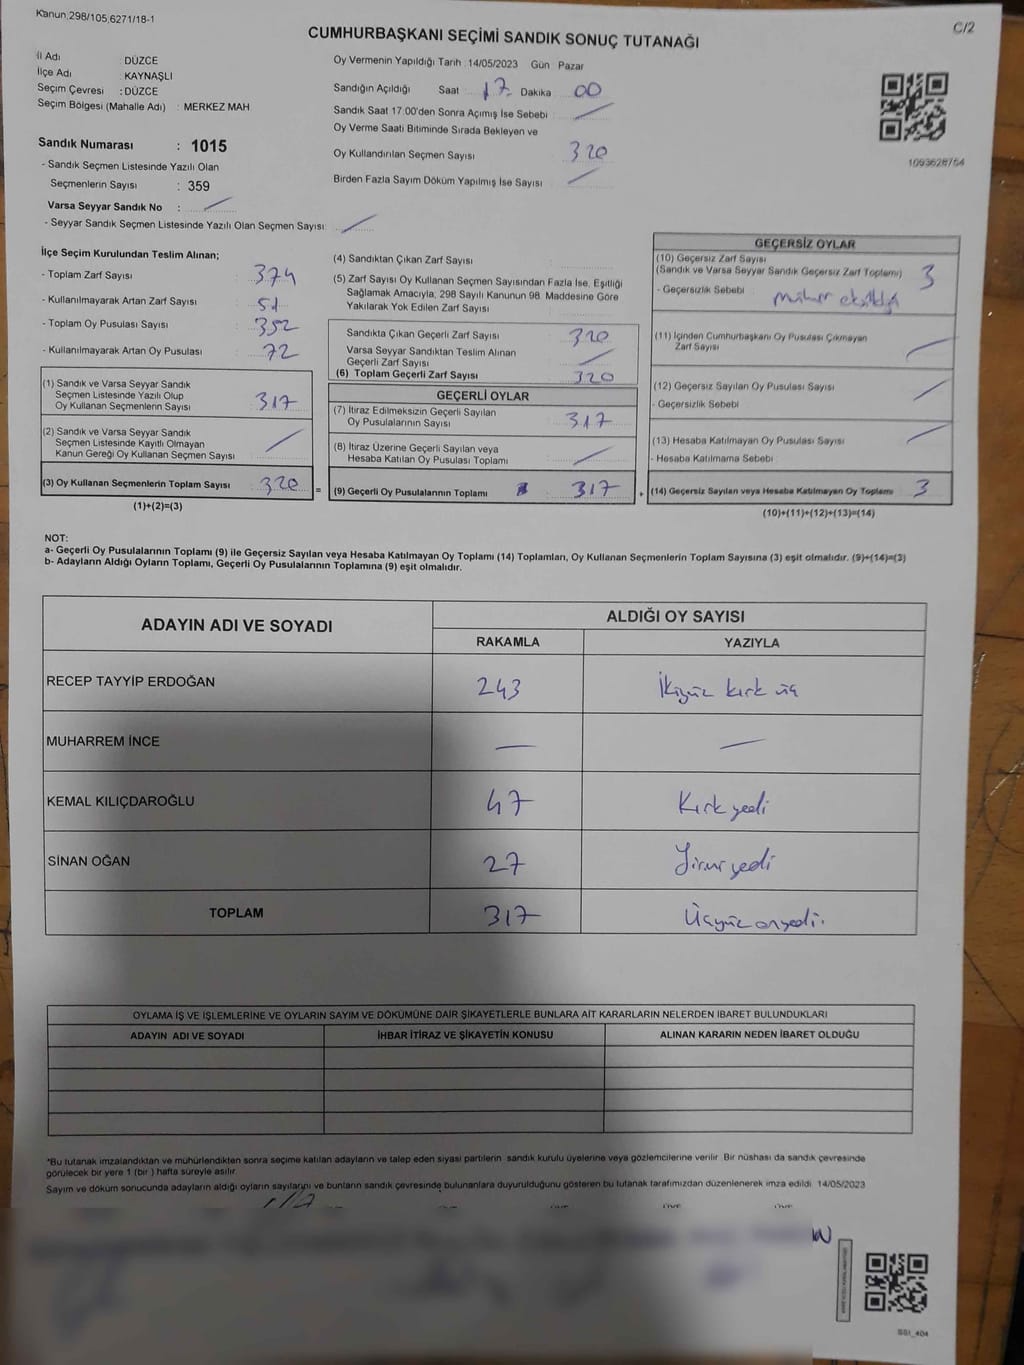 Kanun,298/105,6271/18-1
C/2
CUMHURBAŞKANI SEÇİMİ SANDIK SONUÇ TUTANAĞI
İl Adı : DÜZCE
İlçe Adı : KAYNAŞLI
Seçim Çevresi : DÜZCE
Seçim Bölgesi (Mahalle Adı) : MERKEZ MAH
Sandık Numarası : 1015
- Sandık Seçmen Listesinde Yazılı Olan
Seçmenlerin Sayısı : 359
Varsa Seyyar Sandık No :
- Seyyar Sandık Seçmen Listesinde Yazılı Olan Seçmen Sayısı:
Oy Vermenin Yapıldığı Tarih :14/05/2023 Gün Pazar
Sandığın Açıldığı Saat 17 Dakika 00
Sandık Saat 17:00'den Sonra Açımış İse Sebebi
Oy Verme Saati Bitiminde Sırada Bekleyen ve
Oy Kullandırılan Seçmen Sayısı 320
Birden Fazla Sayım Döküm Yapılmış İse Sayısı
1093628754
İlçe Seçim Kurulundan Teslim Alınan;
- Toplam Zarf Sayısı : 374
- Kullanılmayarak Artan Zarf Sayısı : 51
- Toplam Oy Pusulası Sayısı : 352
- Kullanılmayarak Artan Oy Pusulası : 72
(1) Sandık ve Varsa Seyyar Sandık
Seçmen Listesinde Yazılı Olup
Oy Kullanan Seçmenlerin Sayısı : 317
(2) Sandık ve Varsa Seyyar Sandık
Seçmen Listesinde Kayıtlı Olmayan
Kanun Gereği Oy Kullanan Seçmen Sayısı
(3) Oy Kullanan Seçmenlerin Toplam Sayısı : 320
(1)+(2)=(3)
(4) Sandıktan Çıkan Zarf Sayısı
(5) Zarf Sayısı Oy Kullanan Seçmen Sayısından Fazla İse, Eşitliği
Sağlamak Amacıyla, 298 Sayılı Kanunun 98. Maddesine Göre
Yakılarak Yok Edilen Zarf Sayısı
Sandıkta Çıkan Geçerli Zarf Sayısı 320
Varsa Seyyar Sandıktan Teslim Alınan
Geçerli Zarf Sayısı
(6) Toplam Geçerli Zarf Sayısı 320
GEÇERLİ OYLAR
(7) İtiraz Edilmeksizin Geçerli Sayılan
Oy Pusulalarının Sayısı 317
(8) İtiraz Üzerine Geçerli Sayılan veya
Hesaba Katılan Oy Pusulası Toplamı
= (9) Geçerli Oy Pusulalarının Toplamı 317
GEÇERSİZ OYLAR
(10) Geçersiz Zarf Sayısı
(Sandık ve Varsa Seyyar Sandık Geçersiz Zarf Toplamı) 3
- Geçersizlik Sebebi : mühür
(11) İçinden Cumhurbaşkanı Oy Pusulası Çıkmayan
Zarf Sayısı
(12) Geçersiz Sayılan Oy Pusulası Sayısı
- Geçersizlik Sebebi
(13) Hesaba Katılmayan Oy Pusulası Sayısı
- Hesaba Katılmama Sebebi
+ (14) Geçersiz Sayılan veya Hesaba Katılmayan Oy Toplamı 3
(10)+(11)+(12)+(13)=(14)
NOT:
a- Geçerli Oy Pusulalarının Toplamı (9) ile Geçersiz Sayılan veya Hesaba Katılmayan Oy Toplamı (14) Toplamları, Oy Kullanan Seçmenlerin Toplam Sayısına (3) eşit olmalıdır. (9)+(14)=(3)
b- Adayların Aldığı Oyların Toplamı, Geçerli Oy Pusulalarının Toplamına (9) eşit olmalıdır.
ADAYIN ADI VE SOYADI
ALDIĞI OY SAYISI
RAKAMLA YAZIYLA
RECEP TAYYİP ERDOĞAN 243 İkiyüz kırk üç
MUHARREM İNCE — —
KEMAL KILIÇDAROĞLU 47 Kırk yedi
SİNAN OĞAN 27 Yirmi yedi
TOPLAM 317 Üçyüz onyedi.
OYLAMA İŞ VE İŞLEMLERİNE VE OYLARIN SAYIM VE DÖKÜMÜNE DAİR ŞİKAYETLERLE BUNLARA AİT KARARLARIN NELERDEN İBARET BULUNDUKLARI
ADAYIN ADI VE SOYADI İHBAR İTİRAZ VE ŞİKAYETİN KONUSU ALINAN KARARIN NEDEN İBARET OLDUĞU
*Bu tutanak imzalandıktan ve mühürlendikten sonra seçime katılan adayların ve talep eden siyasi partilerin sandık kurulu üyelerine veya gözlemcilerine verilir. Bir nüshası da sandık çevresinde
görülecek bir yere 1 (bir ) hafta süreyle asılır.
Sayım ve döküm sonucunda adayların aldığı oyların sayılarını ve bunların sandık çevresinde bulunanlara duyurulduğunu gösteren bu tutanak tarafımızdan düzenlenerek imza edildi. 14/05/2023